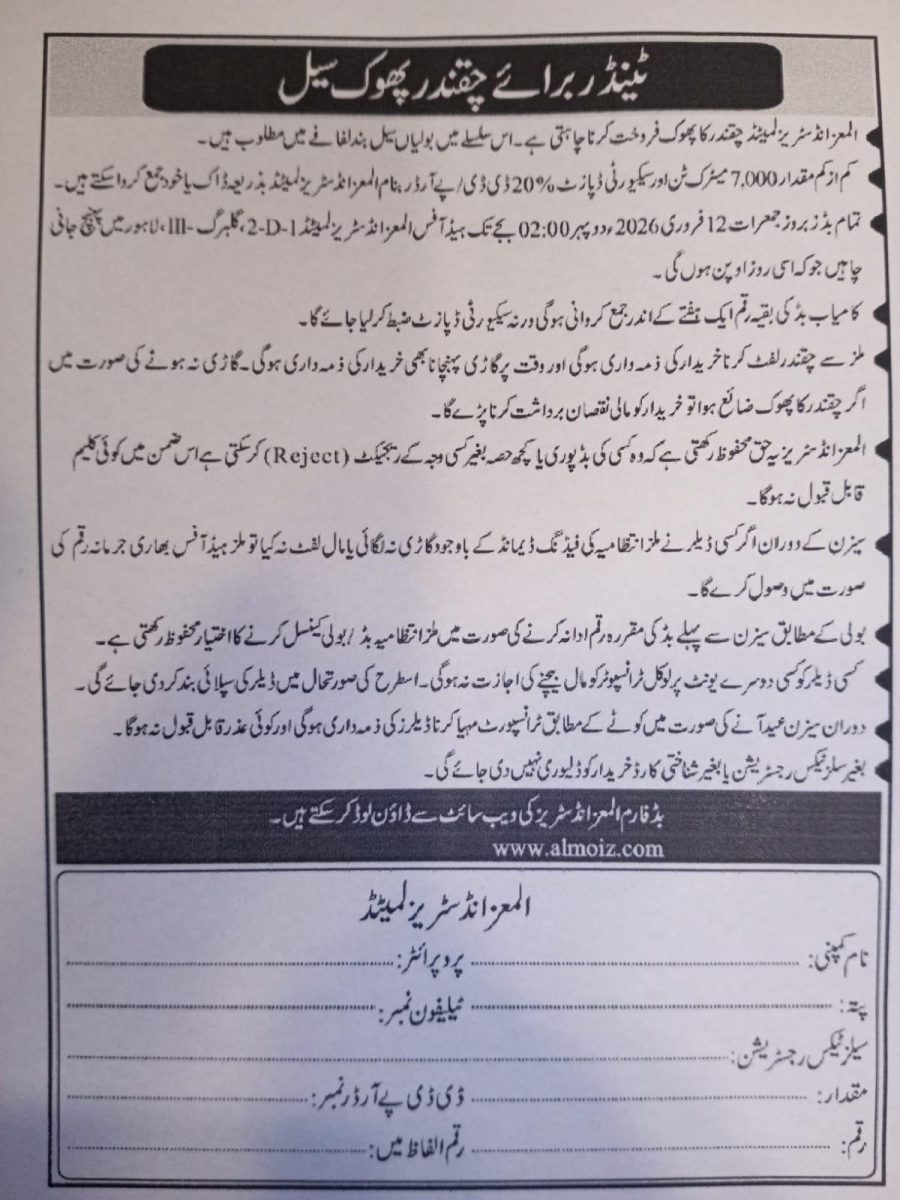 ٹینڈر برائے چقندر پھوک سیل
المعز انڈسٹریز لمیٹڈ چقندر کا پھوک فروخت کرنا چاہتی ہے۔ اس سلسلے میں بولیاں سیل بند لفافے میں مطلوب ہیں۔
کم از کم مقدار 7,000 میٹرک ٹن اور سیکیورٹی ڈپازٹ %20 ڈی ڈی/پے آرڈر بنام المعز انڈسٹریز لمیٹڈ بذریعہ ڈاک یا خود جمع کروا سکتے ہیں۔
تمام بڈز بروز جمعرات 12 فروری 2026ء دوپہر 02:00 بجے تک ہیڈ آفس المعز انڈسٹریز لمیٹڈ 2-D-1، گلبرگ-III، لاہور میں پہنچ جانی
چاہیں جو کہ اسی روز اوپن ہوں گی۔
کامیاب بڈ کی بقیہ رقم ایک ہفتے کے اندر جمع کروانی ہوگی ورنہ سیکیورٹی ڈپازٹ ضبط کر لیا جائے گا۔
ملز سے چقندر لفٹ کرنا خریدار کی ذمہ داری ہوگی اور وقت پر گاڑی پہنچانا بھی خریدار کی ذمہ داری ہوگی۔ گاڑی نہ ہونے کی صورت میں
اگر چقندر کا پھوک ضائع ہوا تو خریدار کو مالی نقصان برداشت کرنا پڑے گا۔
المعز انڈسٹریز یہ حق محفوظ رکھتی ہے کہ وہ کسی کی بڈ پوری یا کچھ حصہ بغیر کسی وجہ کے ریجیکٹ (Reject) کر سکتی ہے اس ضمن میں کوئی کلیم
قابل قبول نہ ہوگا۔
سیزن کے دوران اگر کسی ڈیلر نے ملز انتظامیہ کی فیڈنگ ڈیمانڈ کے باوجود گاڑی نہ لگائی یا مال لفٹ نہ کیا تو ملز ہیڈ آفس بھاری جرمانہ رقم کی
صورت میں وصول کرے گا۔
بولی کے مطابق سیزن سے پہلے بڈ کی مقررہ رقم ادا نہ کرنے کی صورت میں ملز انتظامیہ بڈ / بولی کینسل کرنے کا اختیار محفوظ رکھتی ہے۔
کسی ڈیلر کو کسی دوسرے یونٹ پر لوکل ٹرانسپورٹر کو مال بیچنے کی اجازت نہ ہوگی۔ اسطرح کی صورتحال میں ڈیلر کی سپلائی بند کر دی جائے گی۔
دوران سیزن عید آنے کی صورت میں کوٹے کے مطابق ٹرانسپورٹ مہیا کرنا ڈیلرز کی ذمہ داری ہوگی اور کوئی عذر قابل قبول نہ ہوگا۔
بغیر سلز ٹیکس رجسٹریشن یا بغیر شناختی کارڈ خریدار کو ڈلیوری نہیں دی جائے گی۔
بڈ فارم المعز انڈسٹریز کی ویب سائٹ سے ڈاؤن لوڈ کر سکتے ہیں۔
www.almoiz.com
المعز انڈسٹریز لمیٹڈ
نام کمپنی: پروپرائٹر:
پتہ: ٹیلیفون نمبر:
سیلز ٹیکس رجسٹریشن:
مقدار: ڈی ڈی پے آرڈر نمبر:
رقم: رقم الفاظ میں: